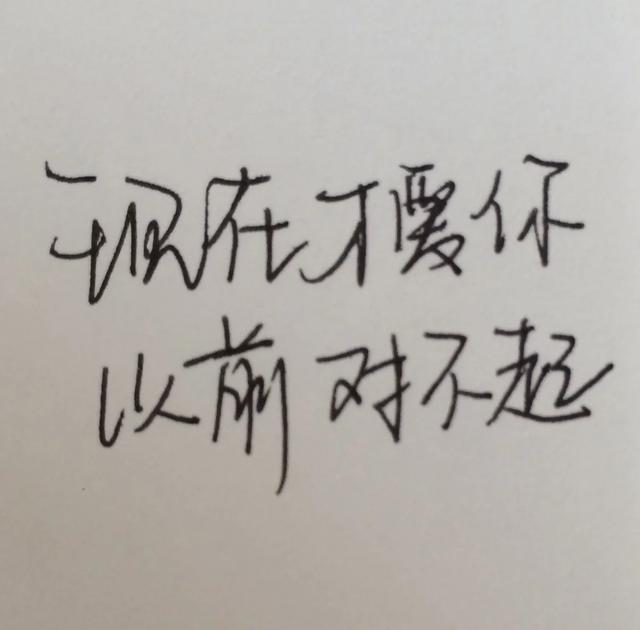 现在才爱你
以前对不起